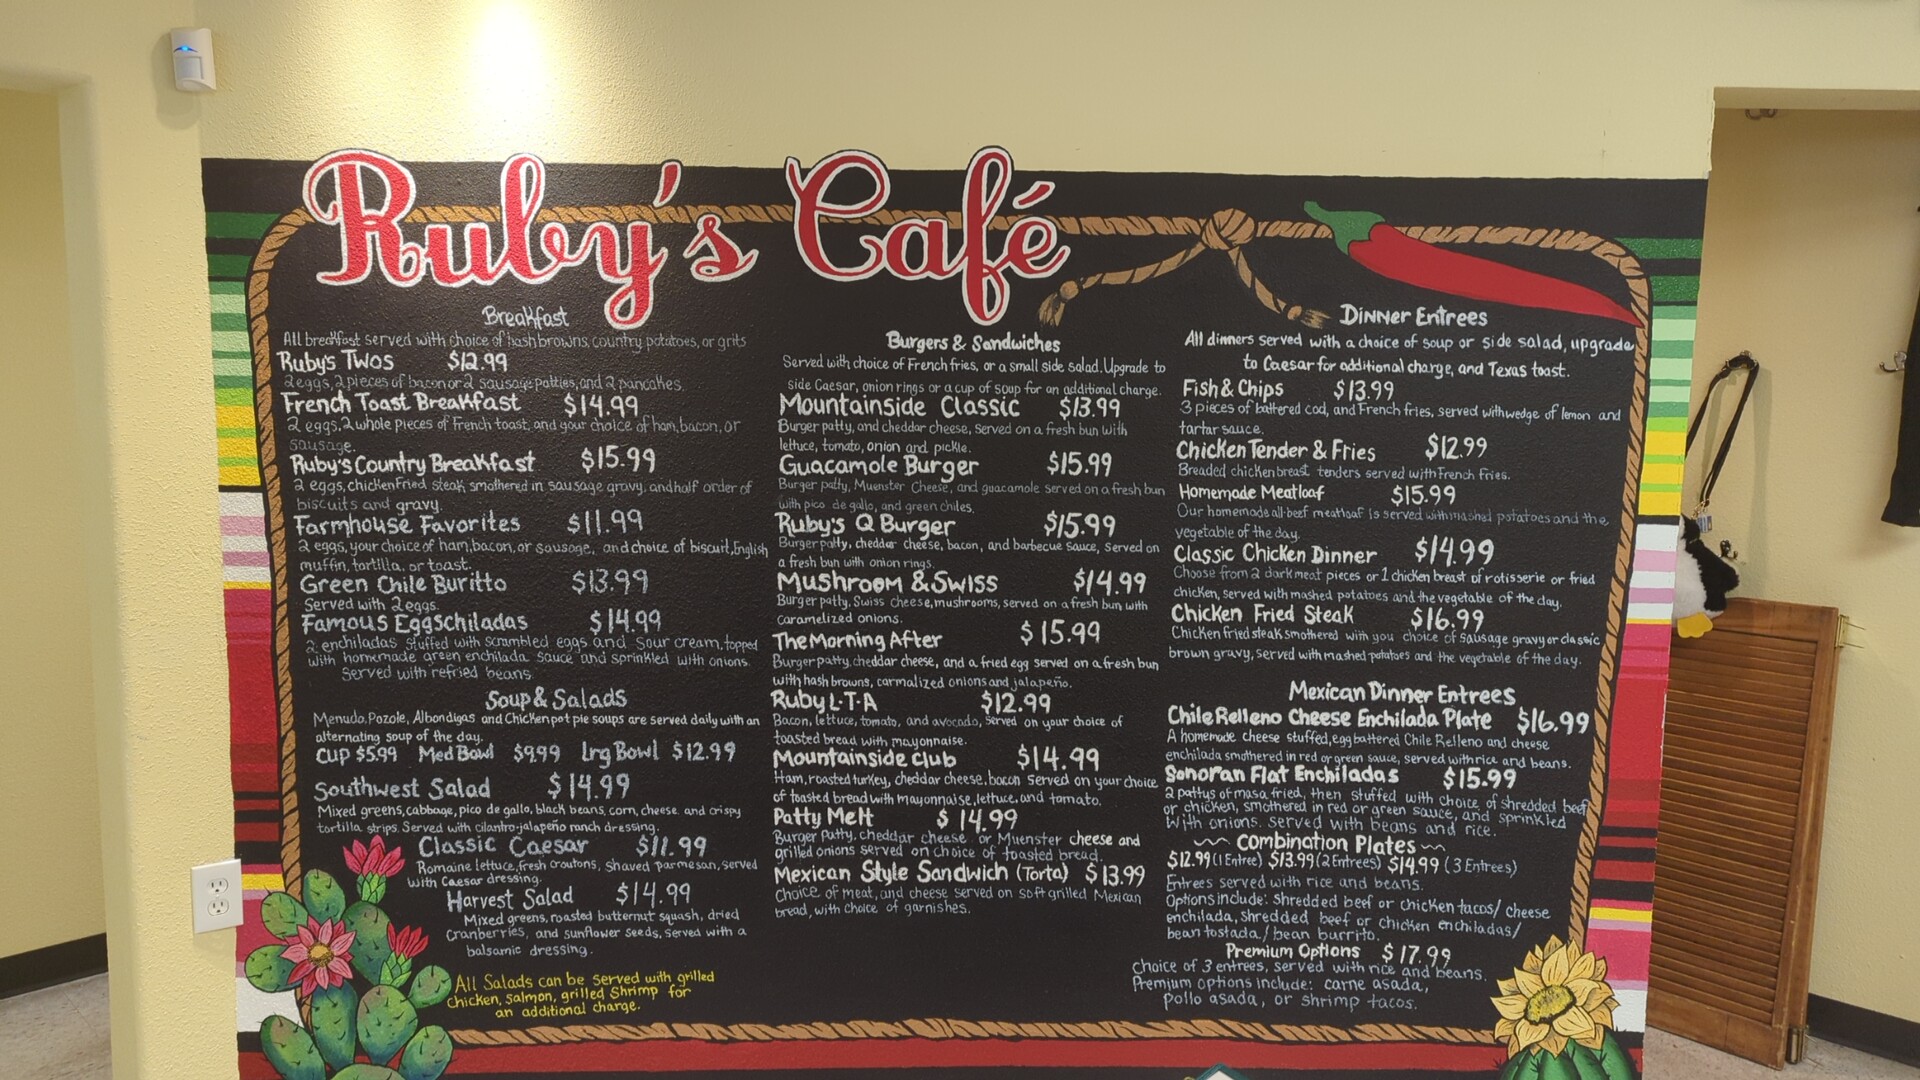 Ruby's Café
Breakfast
All breakfast served with choice of hash browns, country potatoes, or grits
Ruby's Twos $12.99
2 eggs, 2 pieces of bacon or 2 sausage patties, and 2 pancakes.
French Toast Breakfast $14.99
2 eggs, 2 whole pieces of french toast, and your choice of ham, bacon, or
sausage.
Ruby's Country Breakfast $15.99
2 eggs, chicken fried steak smothered in sausage gravy, and half order of
biscuits and gravy.
Farmhouse Favorites $11.99
2 eggs, your choice of ham, bacon, or sausage, and choice of biscuit, English
muffin, tortilla, or toast.
Green Chile Buritto $13.99
Served with 2 eggs.
Famous Eggschiladas $14.99
2 enchiladas stuffed with scrambled eggs and sour cream, topped
with homemade green enchilada sauce and sprinkled with onions.
Served with refried beans.
Soup & Salads
Menudo, Pozole, Albondigas and Chicken pot pie soups are served daily with an
alternating soup of the day.
Cup $5.99 Med Bowl $9.99 Lrg Bowl $12.99
Southwest Salad $14.99
Mixed greens, cabbage, pico de gallo, black beans, corn, cheese and crispy
tortilla strips. Served with cilantro-jalapeño ranch dressing.
Classic Caesar $11.99
Romaine lettuce, fresh croutons, shaved parmesan, served
with Caesar dressing.
Harvest Salad $14.99
Mixed greens, roasted butternut squash, dried
cranberries, and sunflower seeds, served with a
balsamic dressing.
All Salads can be served with grilled
chicken, salmon, grilled shrimp for
an additional charge.
Burgers & Sandwiches
Served with choice of French fries, or a small side salad. Upgrade to
side Caesar, onion rings or a cup of soup for an additional charge.
Mountainside Classic $13.99
Burger patty, and cheddar cheese, served on a fresh bun with
lettuce, tomato, onion and pickle.
Guacamole Burger $15.99
Burger patty, Muenster Cheese, and guacamole served on a fresh bun
with pico de gallo, and green chiles.
Ruby's Q Burger $15.99
Burger patty, cheddar cheese, bacon, and barbecue sauce, served on
a fresh bun with onion rings.
Mushroom & Swiss $14.99
Burger patty, Swiss cheese, mushrooms, served on a fresh bun with
caramelized onions.
The Morning After $15.99
Burger patty, cheddar cheese, and a fried egg served on a fresh bun
with hash browns, carmalized onions and jalapeño.
Ruby L·T·A $12.99
Bacon, lettuce, tomato, and avocado, served on your choice of
toasted bread with mayonnaise.
Mountainside club $14.99
Ham, roasted turkey, cheddar cheese, bacon served on your choice
of toasted bread with mayonnaise, lettuce, and tomato.
Patty Melt $14.99
Burger Patty, cheddar cheese or Muenster cheese and
grilled onions served on choice of toasted bread.
Mexican Style Sandwich (Torta) $13.99
Choice of meat, and cheese served on soft grilled Mexican
bread, with choice of garnishes.
Dinner Entrees
All dinners served with a choice of soup or side salad, upgrade
to Caesar for additional charge, and Texas toast.
Fish & Chips $13.99
3 pieces of battered cod, and French fries, served with wedge of lemon and
tartar sauce.
Chicken Tender & Fries $12.99
Breaded chicken breast tenders served with French fries.
Homemade Meatloaf $15.99
Our homemade all-beef meatloaf is served with mashed potatoes and the
vegetable of the day.
Classic Chicken Dinner $14.99
Choose from 2 dark meat pieces or 1 chicken breast of rotisserie or fried
chicken, served with mashed potatoes and the vegetable of the day.
Chicken Fried Steak $16.99
Chicken fried steak smothered with you choice of sausage gravy or classic
brown gravy, served with mashed potatoes and the vegetable of the day.
Mexican Dinner Entrees
Chile Relleno Cheese Enchilada Plate $16.99
A homemade cheese stuffed, egg battered Chile Relleno and cheese
enchilada smothered in red or green sauce, served with rice and beans.
Sonoran Flat Enchiladas $15.99
2 pattys of masa fried, then stuffed with choice of shredded beef
or chicken, smothered in red or green sauce, and sprinkled
with onions. served with beans and rice.
Combination Plates
$12.99 (1 Entree) $13.99 (2 Entrees) $14.99 (3 Entrees)
Entrees served with rice and beans.
Options include: shredded beef or chicken tacos/ cheese
enchilada, shredded beef or chicken enchiladas/
bean tostada/ bean burrito.
Premium Options $17.99
Choice of 3 entrees, served with rice and beans.
Premium options include: carne asada,
pollo asada, or shrimp tacos.